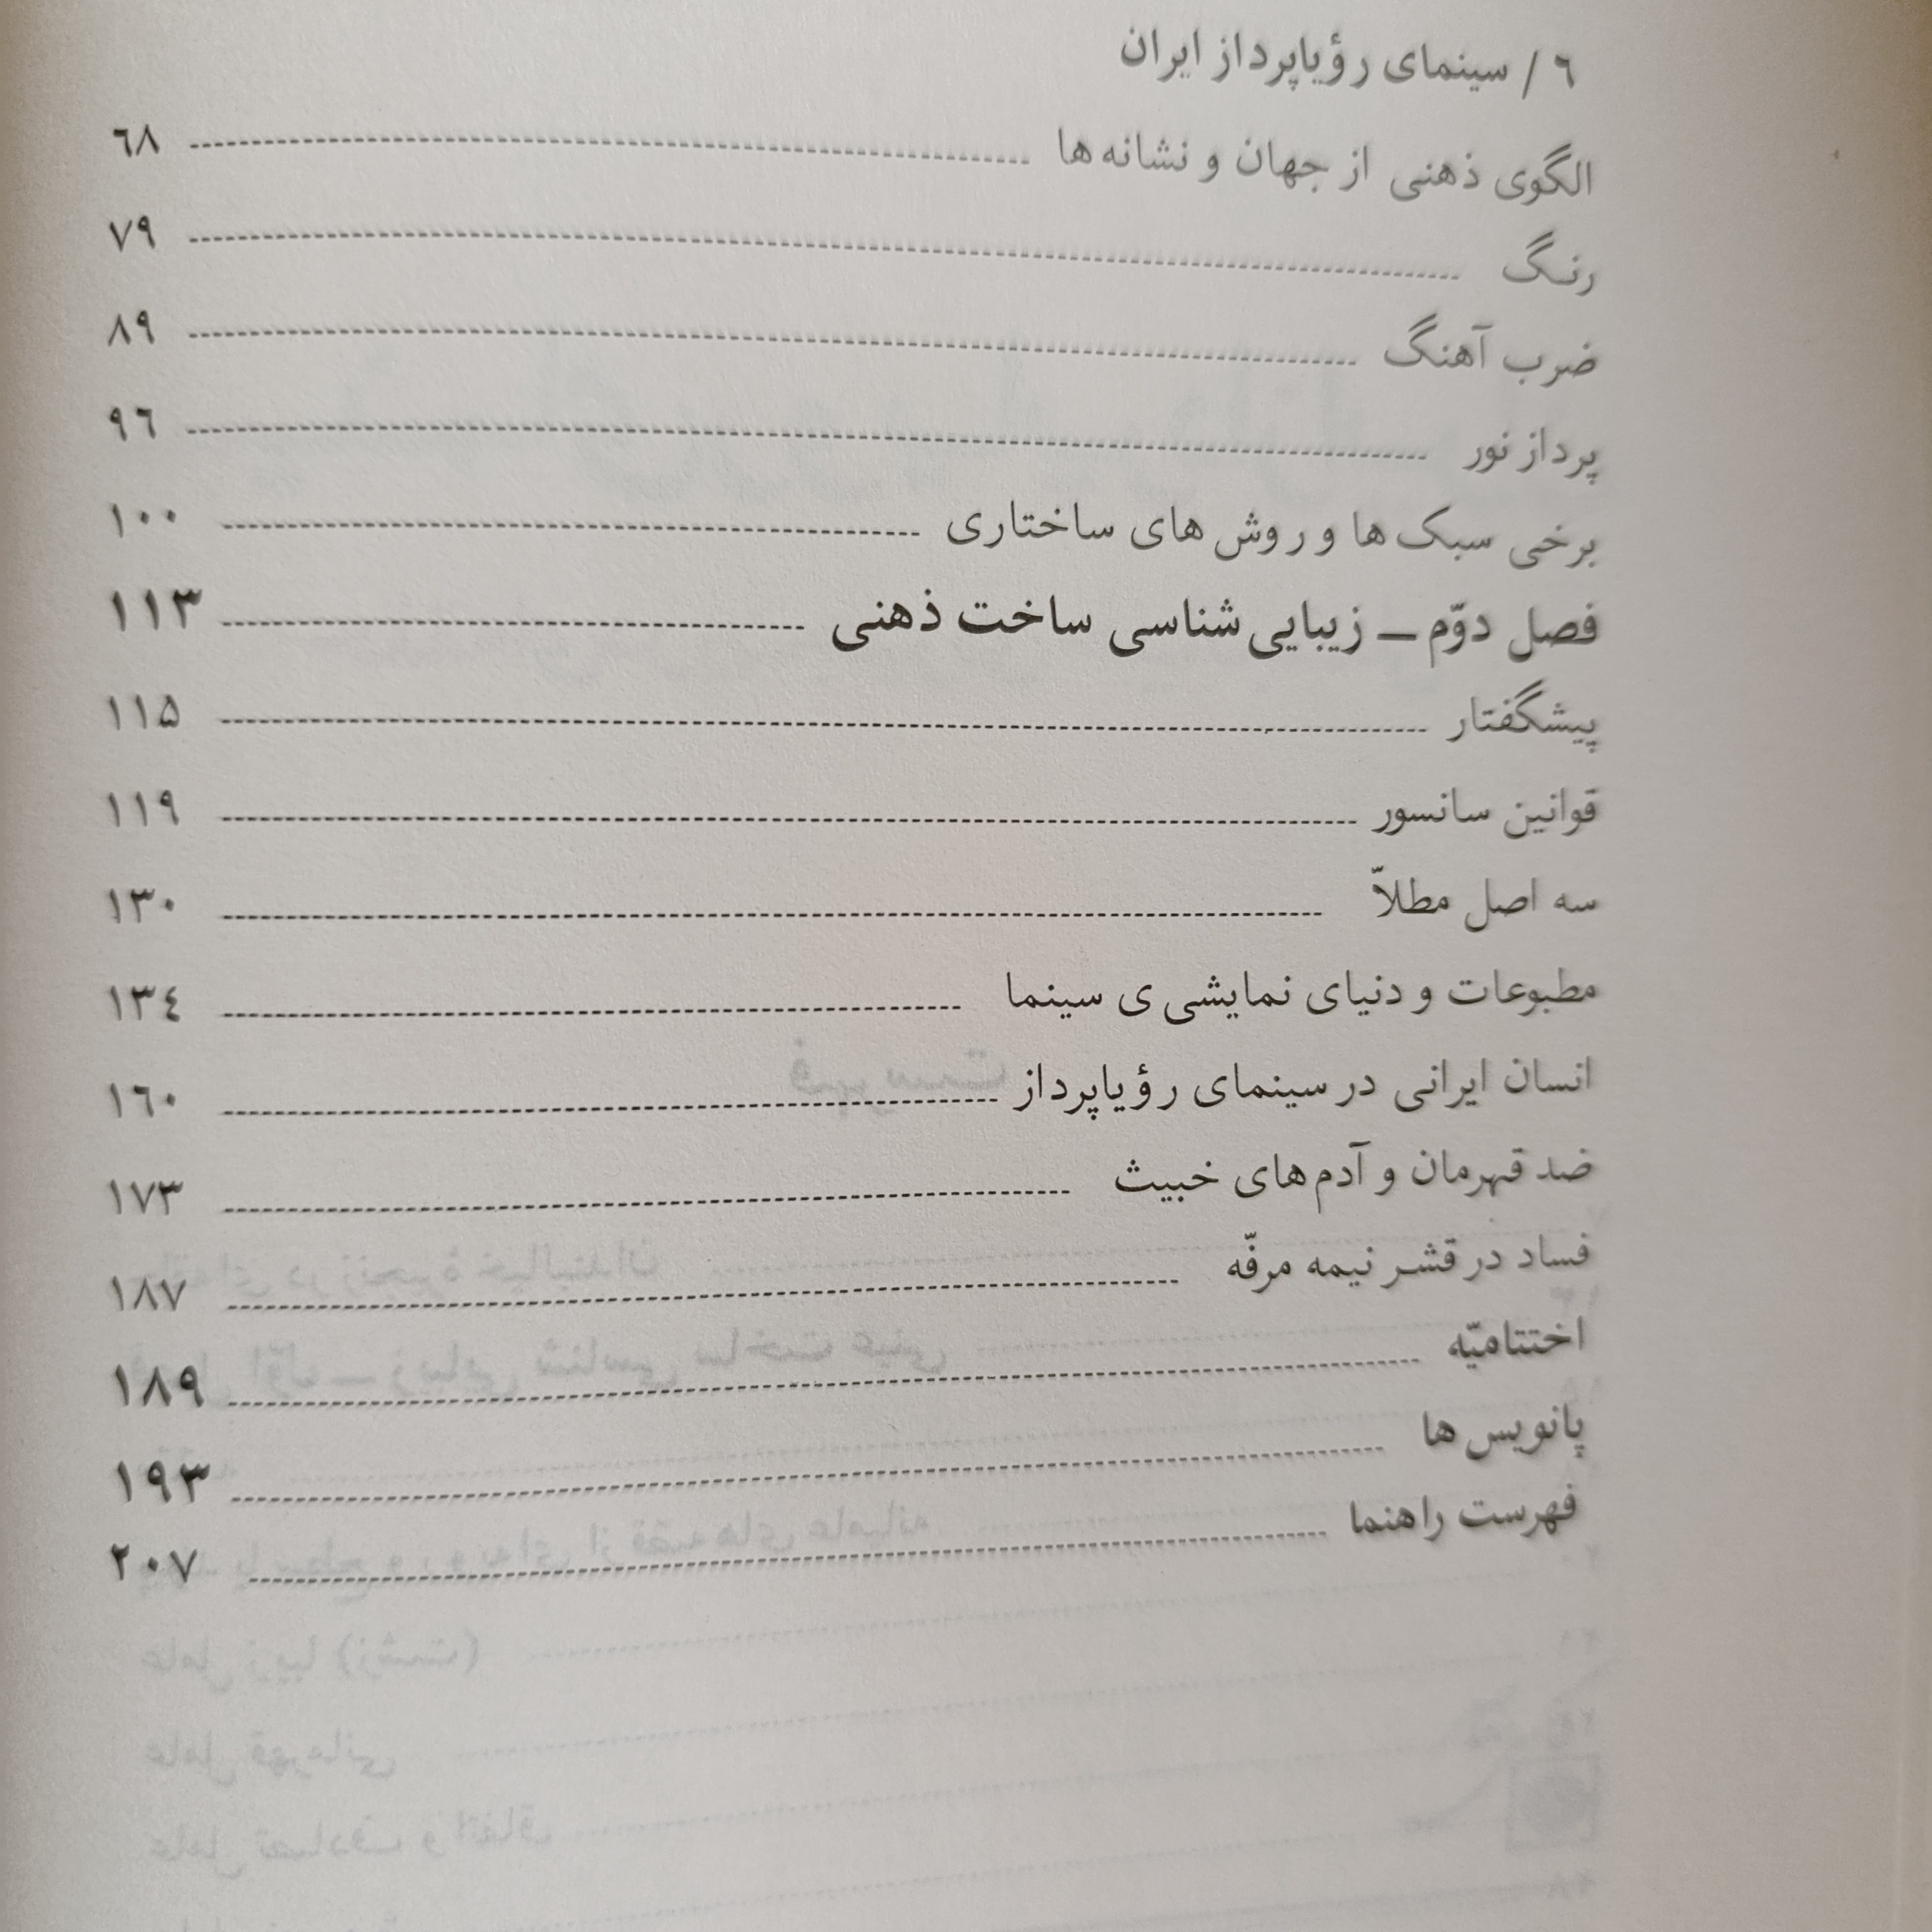 ٦ / سینمای رؤیاپرداز ایران
الگوی ذهنی از جهان و نشانه ها ........ ٦٨
رنگ ........ ٧٩
ضرب آهنگ ........ ٨٩
پرداز نور ........ ٩٦
برخی سبک ها و روش های ساختاری ........ ١٠٠
فصل دوّم ـ زیبایی شناسی ساخت ذهنی ........ ١١٣
پیشگفتار ........ ١١۵
قوانین سانسور ........ ١١٩
سه اصل مطلاّ ........ ١٣٠
مطبوعات و دنیای نمایشی ی سینما ........ ١٣٤
انسان ایرانی در سینمای رؤیاپرداز ........ ١٦٠
ضد قهرمان و آدم های خبیث ........ ١٧٣
فساد در قشر نیمه مرفّه ........ ١٨٧
اختتامیّه ........ ١٨٩
پانویس ها ........ ١٩٣
فهرست راهنما ........ ٢٠٧